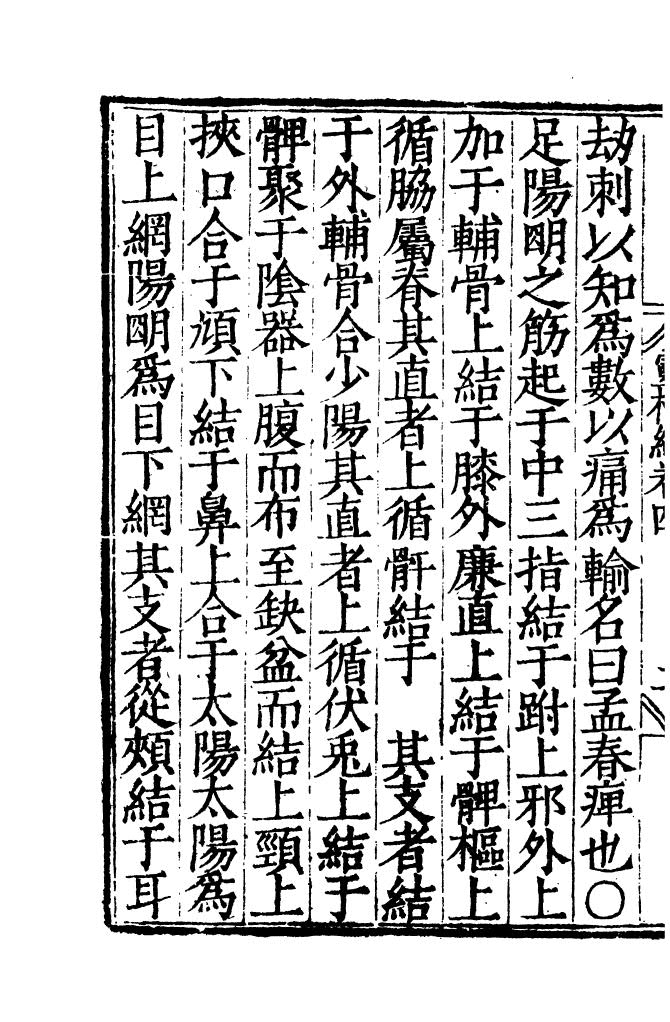 劫刺以知爲數以痛爲輸名曰孟春痺也〇
足陽明之筋起于中三指結于跗上邪外上
加于輔骨上結于膝外廉直上結于髀樞上
循脇屬脊其直者上循骭結于　其支者結
于外輔骨合少陽其直者上循伏兎上結于
髀聚于陰器上腹而布至缺盆而結上頸上
挾口合于頄下結于鼻上合于太陽太陽爲
目上網陽明爲目下網其支者從頰結于耳